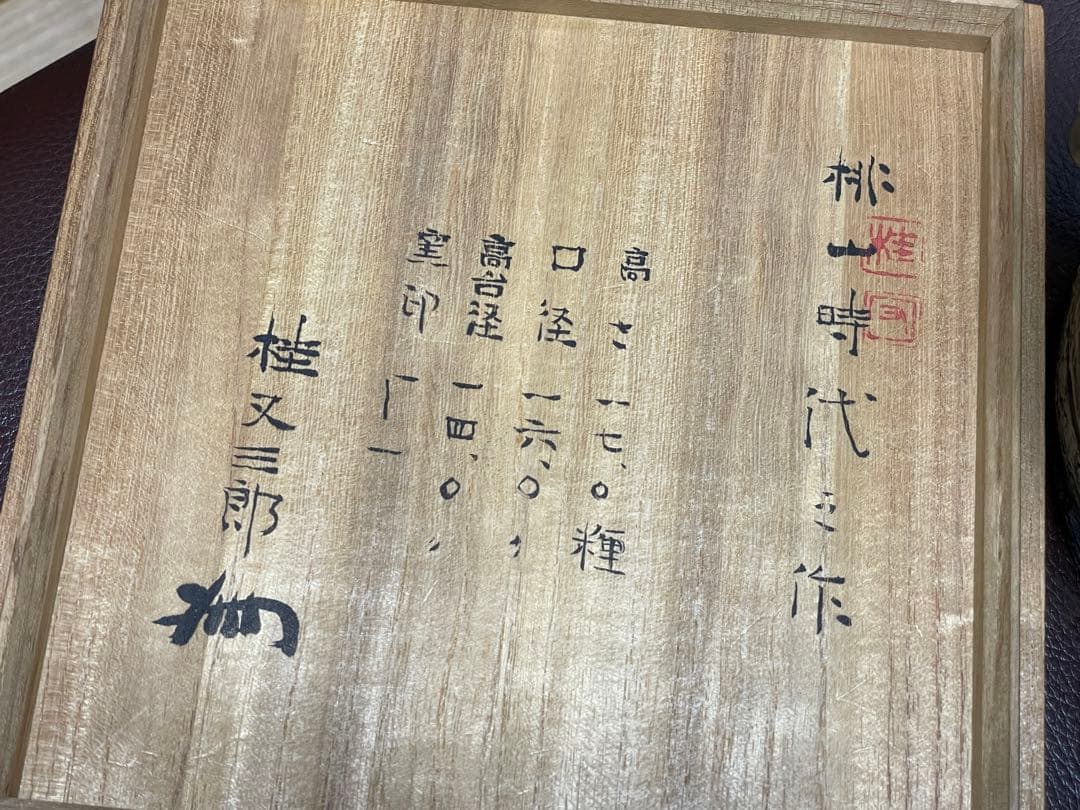 桃山時代之作
高さ 一七、〇糎
口径 一六、〇〃
高台径 一四、〇〃
窯印
桂又三郎